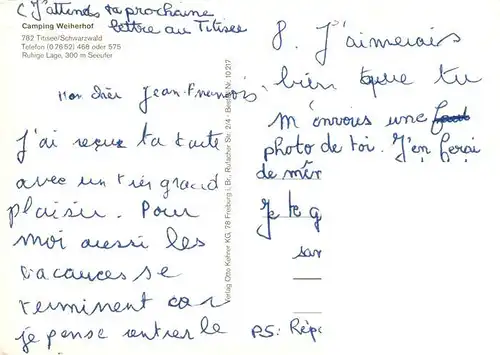 (J'attends ta prochaine
lettre au Titisee
Camping Weiherhof
782 Titisee/Schwarzwald
Telefon (0 76 52) 468 oder 575
Ruhige Lage, 300 m Seeufer
Mon cher Jean-François,
J'ai reçu ta carte
avec un très grand
plaisir. Pour
moi aussi les
vacances se
terminent car
je pense rentrer le
Verlag Otto Kellner KG, 78 Freiburg i. Br., Rufacher Str. 2/4 · Bestell-Nr. 10 217
8. J'aimerais
bien que tu
m'envoies une
photo de toi. J'en ferai
de mêm
Je te g
san
PS: Rép